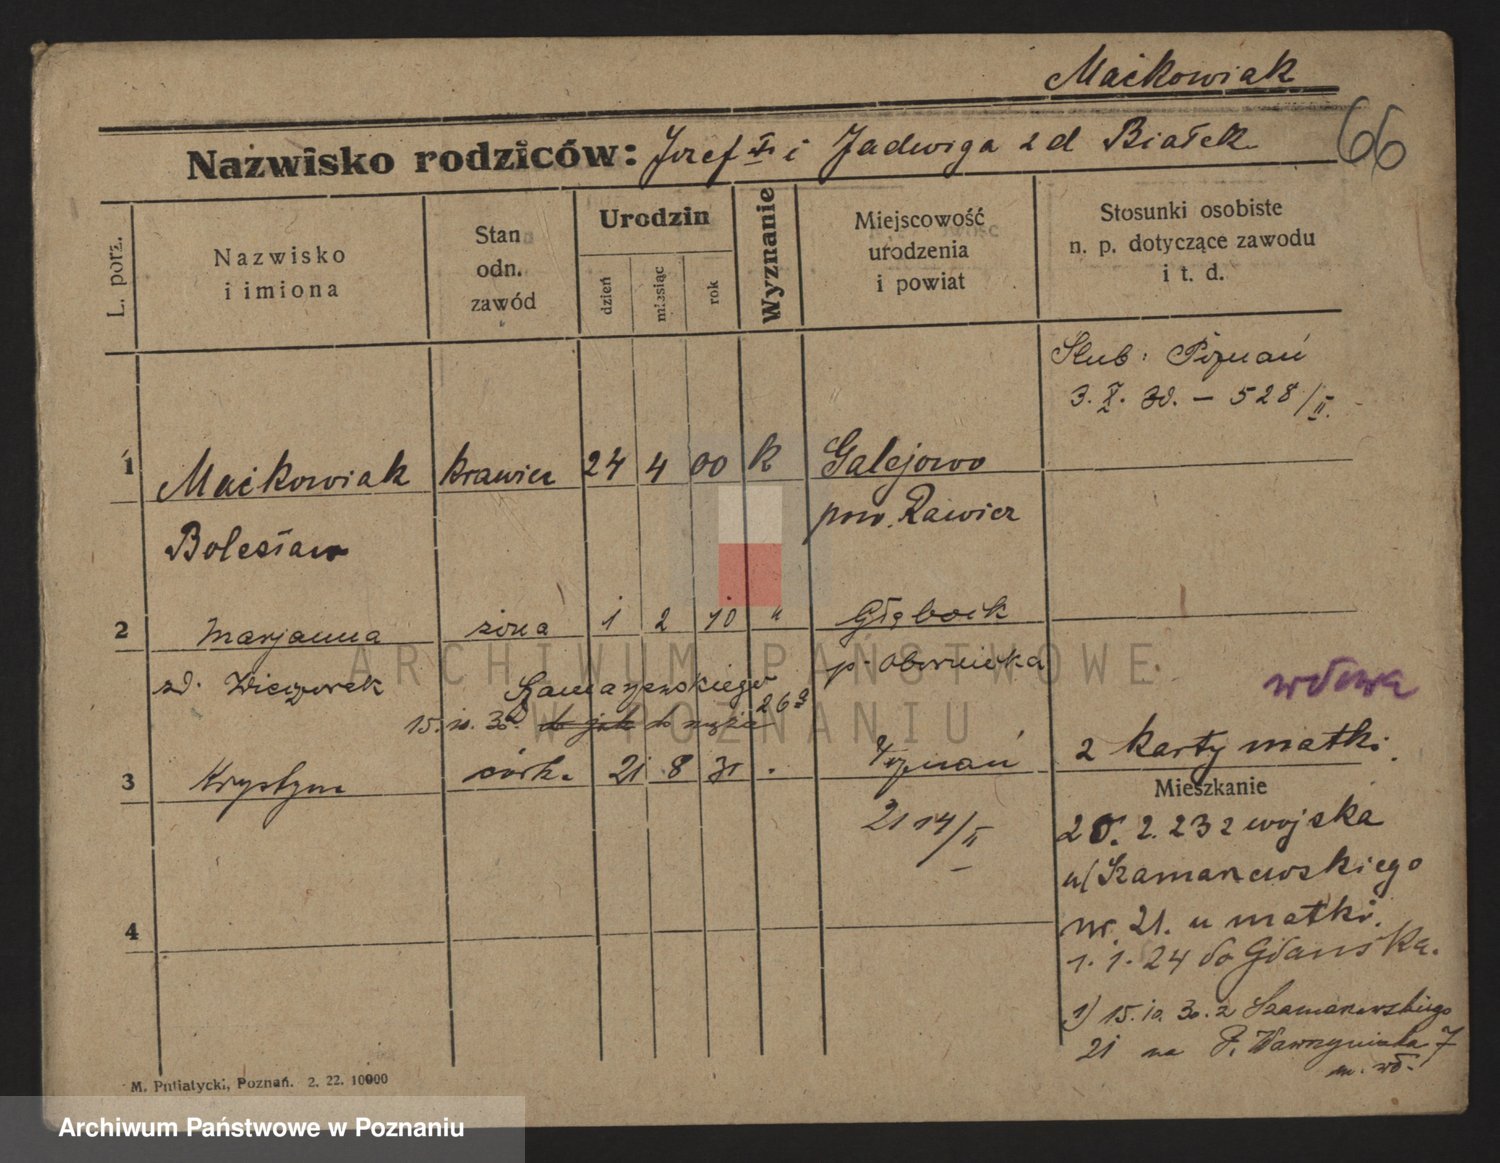 Maćkowiak
Nazwisko rodziców: Józef i Jadwiga zd Białek
66
L. porz.
Nazwisko
i imiona
Stan
odn.
zawód
Urodzin
dzień
miesiąc
rok
Wyznanie
Miejscowość
urodzenia
i powiat
Stosunki osobiste
n. p. dotyczące zawodu
i t. d.
Ślub: Poznań
3. X. 30. – 528/II.
1 Maćkowiak krawiec 24 4 00 k Galejowo
pow. Rawicz
Bolesław
2 Marjanna żona 1 2 10 " Głębock
zd. Wieczorek
p. Obornicka
Szamarzewskiego 26a
15. 10. 30. do męża
wdowa
2 karty matki.
3 Krystyna córka 21 8 31 . Poznań
2114/II
Mieszkanie
20. 2. 23 z wojska
ul Szamarzewskiego
nr. 21. u matki.
1. 1. 24 do Gdańska.
1) 15. 10. 30. z Szamarzewskiego
21 na P. Wawrzyniaka 7
4
M. Putiatycki, Poznań. 2. 22. 10000
ARCHIWUM PAŃSTWOWE
W POZNANIU
Archiwum Państwowe w Poznaniu